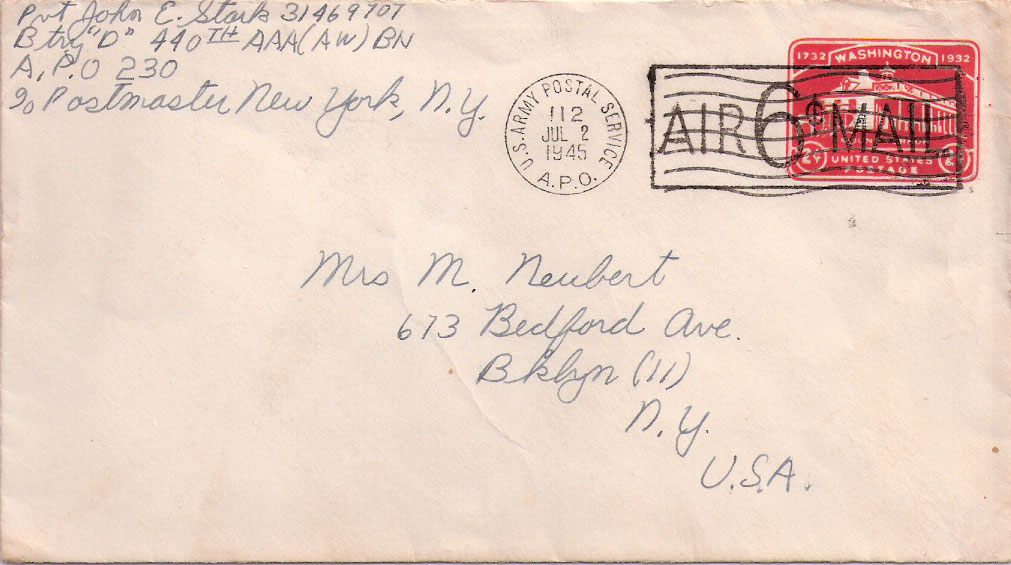 Pvt John E. Stark 31469707
Btry "D" 440TH AAA (AW) BN
A.P.O 230
c/o Postmaster New York, N.Y.
U.S. ARMY POSTAL SERVICE
112
JUL 2
1945
A.P.O.
AIR 6¢ MAIL
1732 WASHINGTON 1932
UNITED STATES
POSTAGE
Mrs M. Neubert
673 Bedford Ave.
Bklyn (11)
N.Y.
U.S.A.